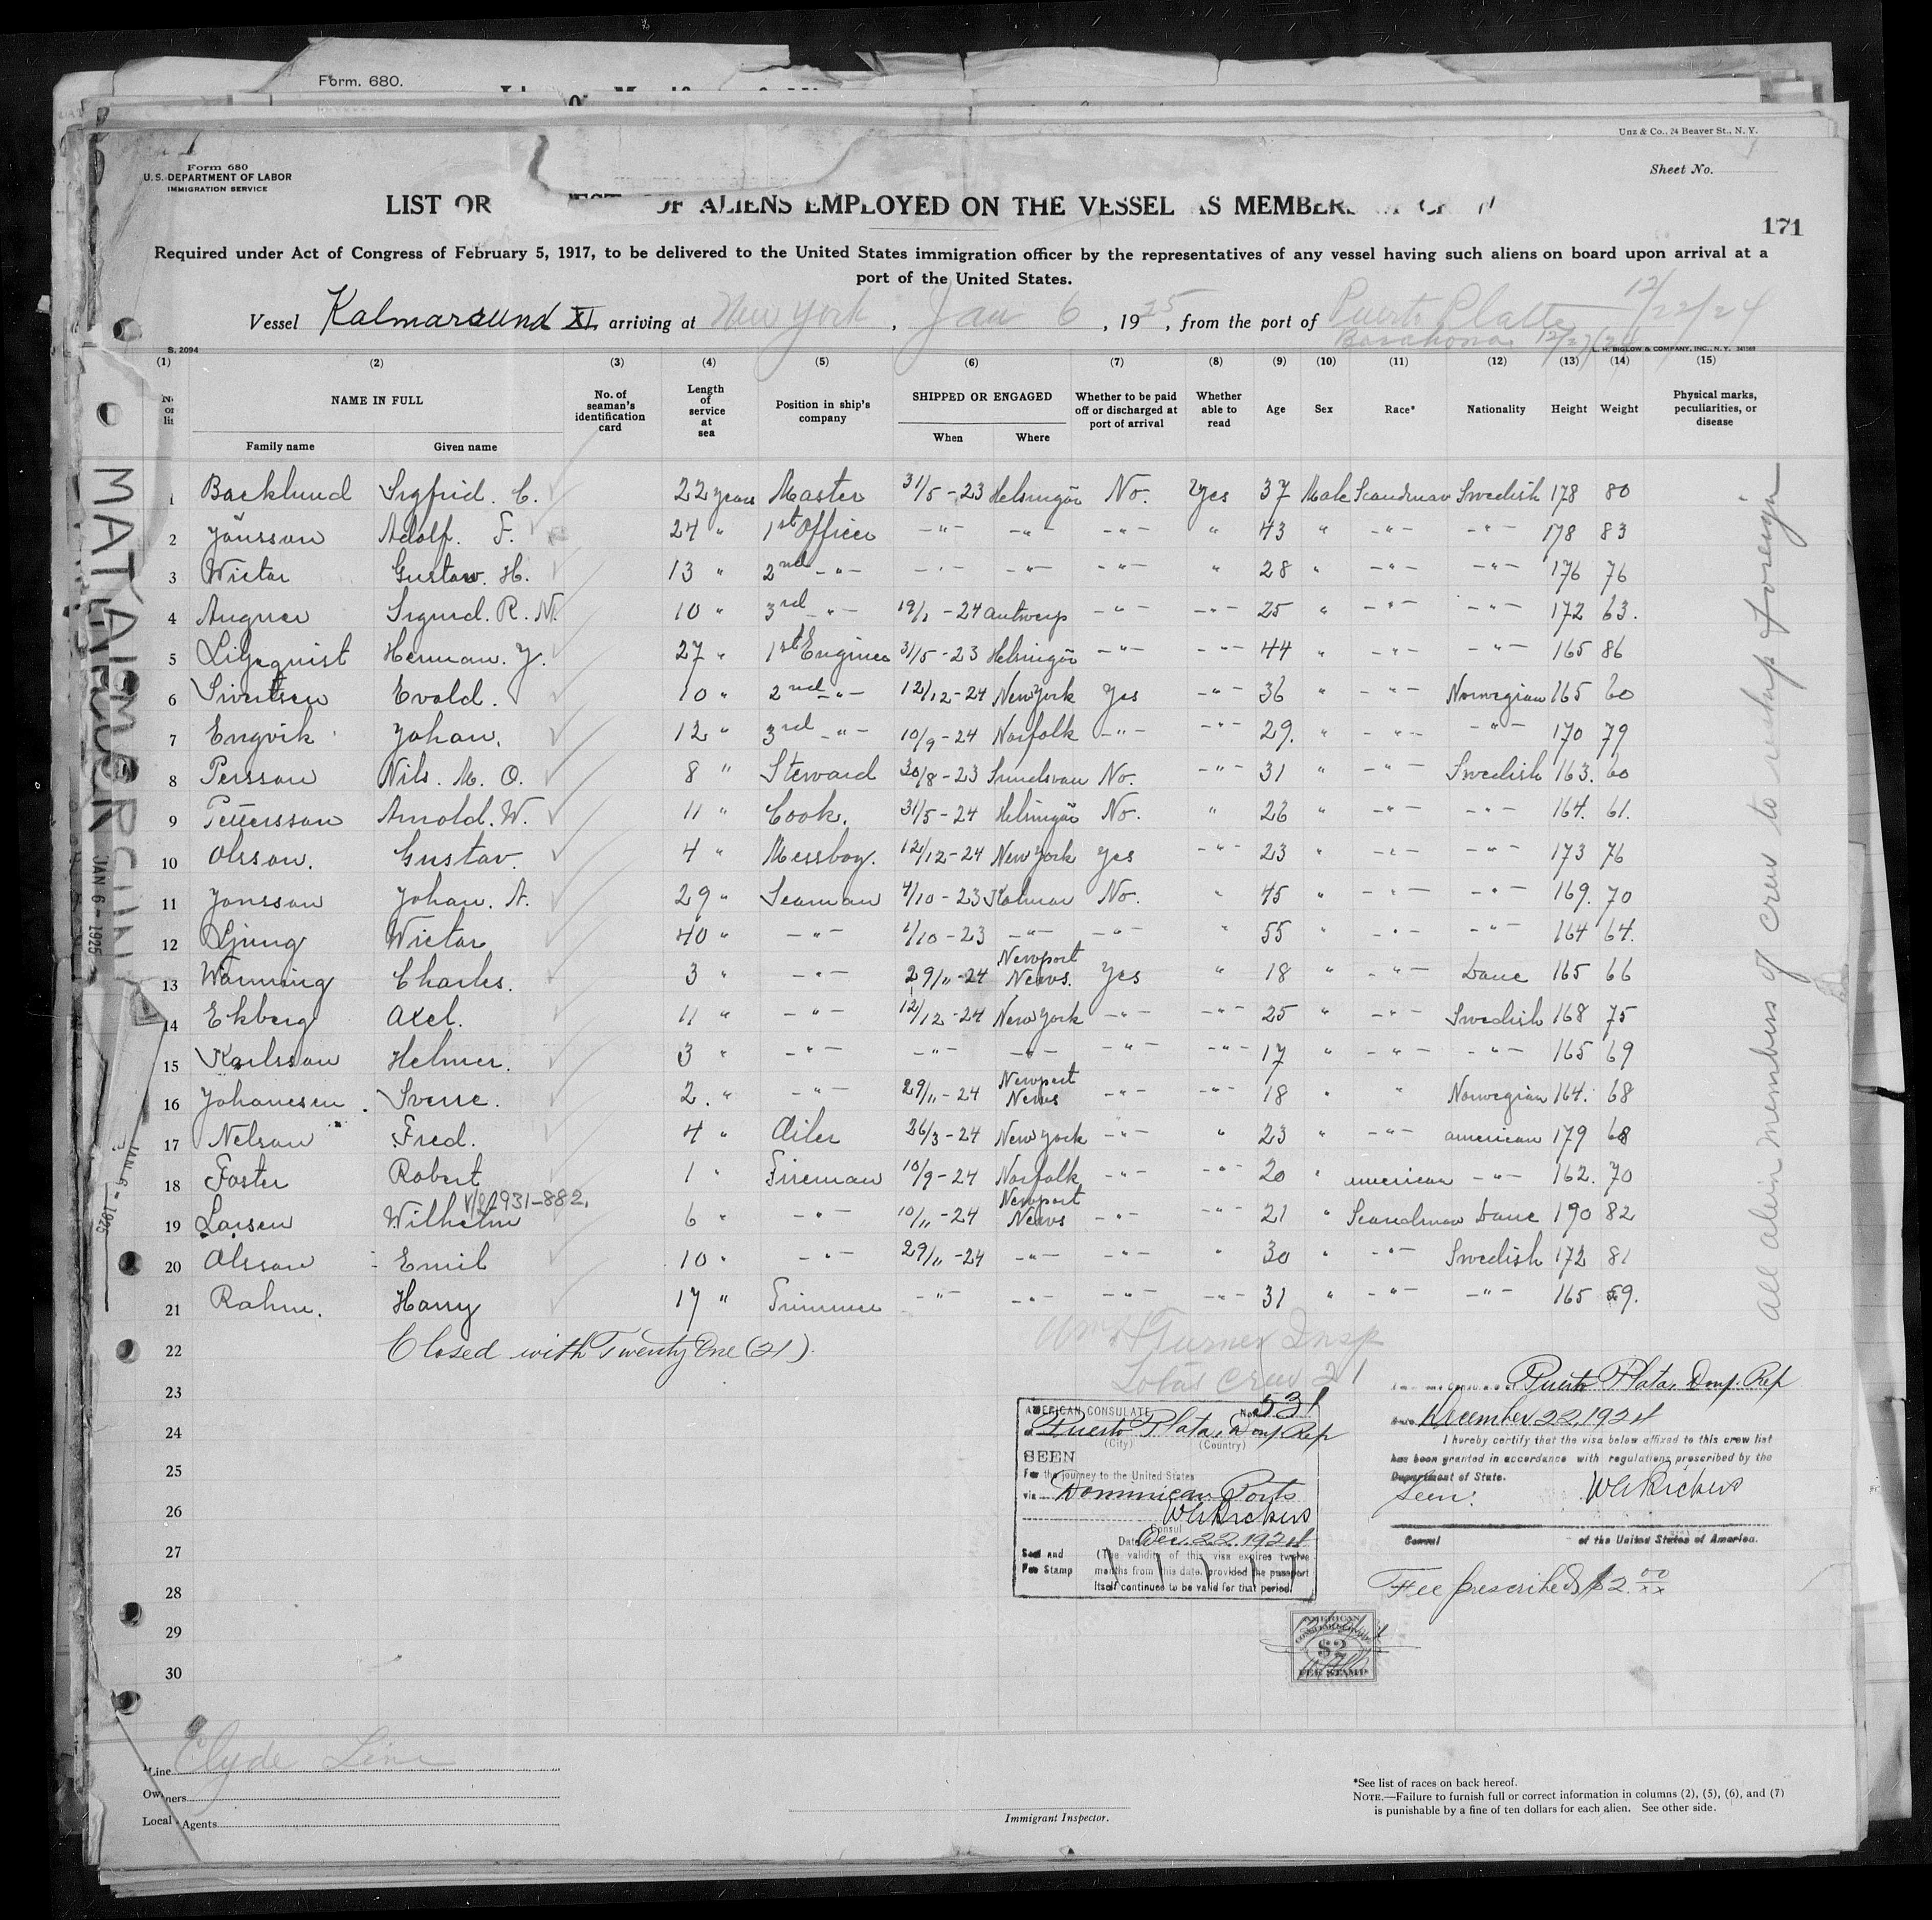 Form. 680.
Unz & Co., 24 Beaver St., N. Y.
Form 680
U. S. DEPARTMENT OF LABOR
IMMIGRATION SERVICE
Sheet No.
LIST OR OF ALIENS EMPLOYED ON THE VESSEL AS MEMBERS
171
Required under Act of Congress of February 5, 1917, to be delivered to the United States immigration officer by the representatives of any vessel having such aliens on board upon arrival at a
port of the United States.
Vessel Kalmarsund XI arriving at New York, Jan 6, 1925, from the port of Puerto Platte 12/22/24
Barahona 12/27/24
S. 2094
L. H. BIGLOW & COMPANY, INC., N. Y.
(1) (2) (3) (4) (5) (6) (7) (8) (9) (10) (11) (12) (13) (14) (15)
NAME IN FULL Family name Given name No. of seaman's identification card Length of service at sea Position in ship's company SHIPPED OR ENGAGED When Where Whether to be paid off or discharged at port of arrival Whether able to read Age Sex Race* Nationality Height Weight Physical marks, peculiarities, or disease
1 Backlund Sigfrid. C. 22 years Master 31/5-23 Helsingör No. Yes 37 Male Scandinav Swedish 178 80
2 Jönsson Adolf. F. 24 " 1st Officer -"- -"- -"- " 43 " -"- -"- 178 83
3 Wictor Gustav. H. 13 " 2nd -"- -"- -"- -"- " 28 " -"- -"- 176 76
4 Augner Sigurd. R. N. 10 " 3rd -"- 19/1-24 Antwerp -"- -"- 25 " -"- -"- 172 63.
5 Liljeqvist Herman. J. 27 " 1st Engineer 31/5-23 Helsingör -"- -"- 44 " -"- -"- 165 86
6 Sivertsen Evald. 10 " 2nd -"- 12/12-24 New York Yes -"- 36 " -"- Norwegian 165 60
7 Engvik Johan. 12 " 3rd -"- 10/9-24 Norfolk -"- -"- 29. " -"- -"- 170 79
8 Persson Nils. M. O. 8 " Steward 30/8-23 Sundsvau No. -"- 31 " -"- Swedish 163. 60
9 Pettersson Arnold. W. 11 " Cook. 31/5-24 Helsingör No. " 26 " -"- -"- 164. 61.
10 Olsson. Gustav. 4 " Messboy. 12/12-24 New York Yes -"- 23 " -"- -"- 173 76
11 Jonsson Johan. A. 29 " Seaman 4/10-23 Kalmar No. " 45 " -"- -"- 169. 70
12 Ljung Wictor 40 " -"- 1/10-23 -"- -"- " 55 " -"- -"- 164 64.
13 Wanning Charles. 3 " -"- 29/11-24 Newport News. Yes " 18 " -"- Dane 165 66
14 Ekberg Axel. 11 " -"- 12/12-24 New York -"- -"- 25 " -"- Swedish 168 75
15 Karlsson Helmer. 3 " -"- -"- -"- -"- -"- 17 " -"- -"- 165 69
16 Johanesen Sverre. 2. " -"- 29/11-24 Newport News -"- -"- 18 " " Norwegian 164. 68
17 Nelson Fred. 4 " Oiler 26/3-24 New York -"- " 23 " -"- American 179 68
18 Foster Robert 1 " Fireman 10/9-24 Norfolk -"- -"- 20 " American -"- 162. 70
931-882,
19 Larsen Wilhelm 6 " -"- 10/11-24 Newport News -"- -"- 21 " Scandinav Dane 190 82
20 Olsson Emil 10 " -"- 29/11-24 -"- -"- " 30 " -"- Swedish 172 81
21 Rahm. Harry 17 " Trimmer -"- -"- -"- -"- 31 " -"- -"- 165 59.
22 Closed with Twenty One (21).
Wm H Turner Insp
Total Crew 21
23
24
25
26
27
28
29
30
All alien members of crew to reship foreign
MAT
JAN 6 - 1925
JAN 6 - 1925
AMERICAN CONSULATE No. 531
Puerto Plata, Dom. Rep
(City) (Country)
SEEN
For the journey to the United States
via Dominican Ports
W A Bickers
Consul
Date Dec. 22. 1924
Seal and Fee Stamp
(The validity of this visa expires twelve
months from this date, provided the passport
itself continues to be valid for that period.
Puerto Plata, Dom. Rep
Date December 22 1924
I hereby certify that the visa below affixed to this crew list
has been granted in accordance with regulations prescribed by the
Department of State.
Seen:
W A Bickers
Consul of the United States of America.
Fee prescribed $2.00
AMERICAN
CONSULAR
$2
FEE STAMP
Line Clyde Line
Owners
Local Agents
Immigrant Inspector.
*See list of races on back hereof.
NOTE.—Failure to furnish full or correct information in columns (2), (5), (6), and (7)
is punishable by a fine of ten dollars for each alien. See other side.